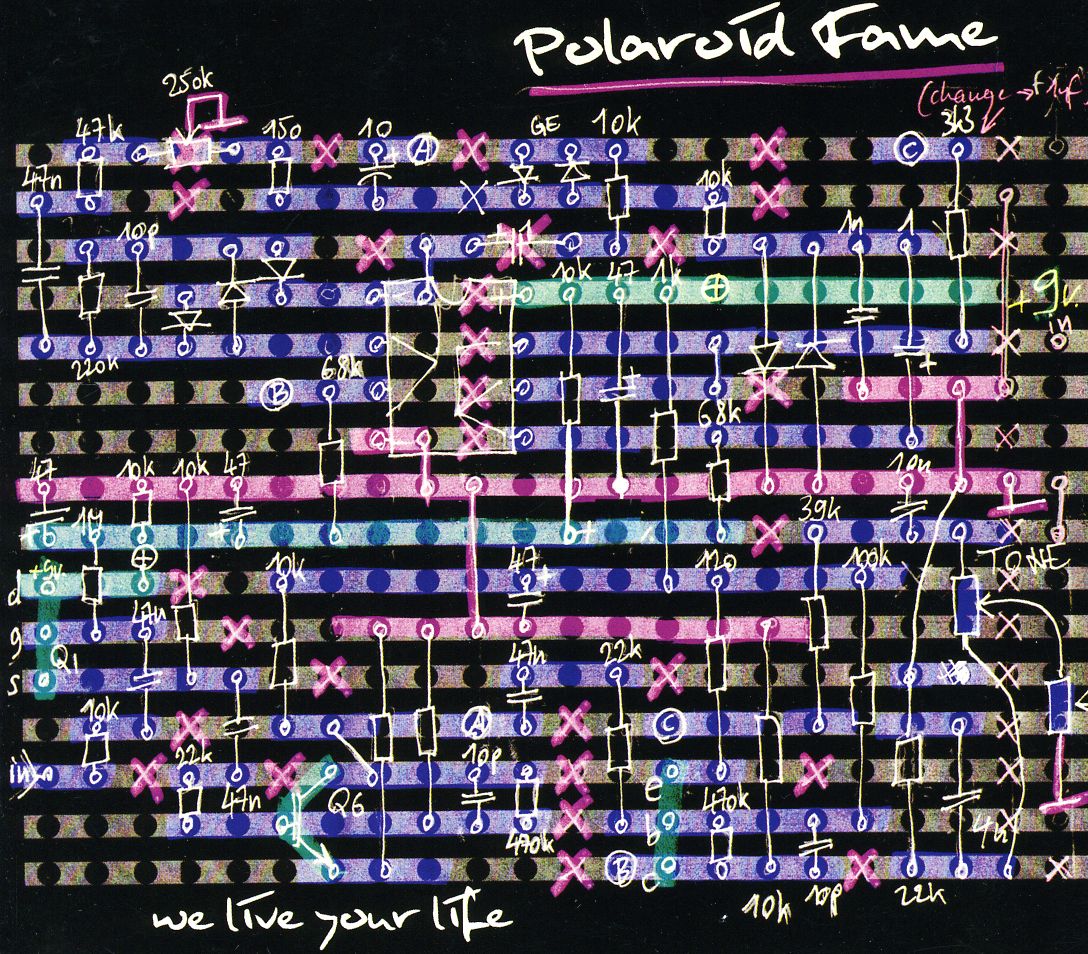 Polaroid Fame
250k
(change → 1µf
47k 150 10 A GE 10k C 3k3
47n 10k
10p 1 1n 1
10k 47 1k + + 9v.
220k in
B 68k
68k
47 10k 10k 47 10n
+ 1M + + 39k
+9v. + 10k 47 + 120 100k TONE
d
g 47n
Q1 47n 22k
s
10k A C
in 22k 10p
47n Q6 e 470k
470k b 4n
B c
10k 10p 22k
we live your life